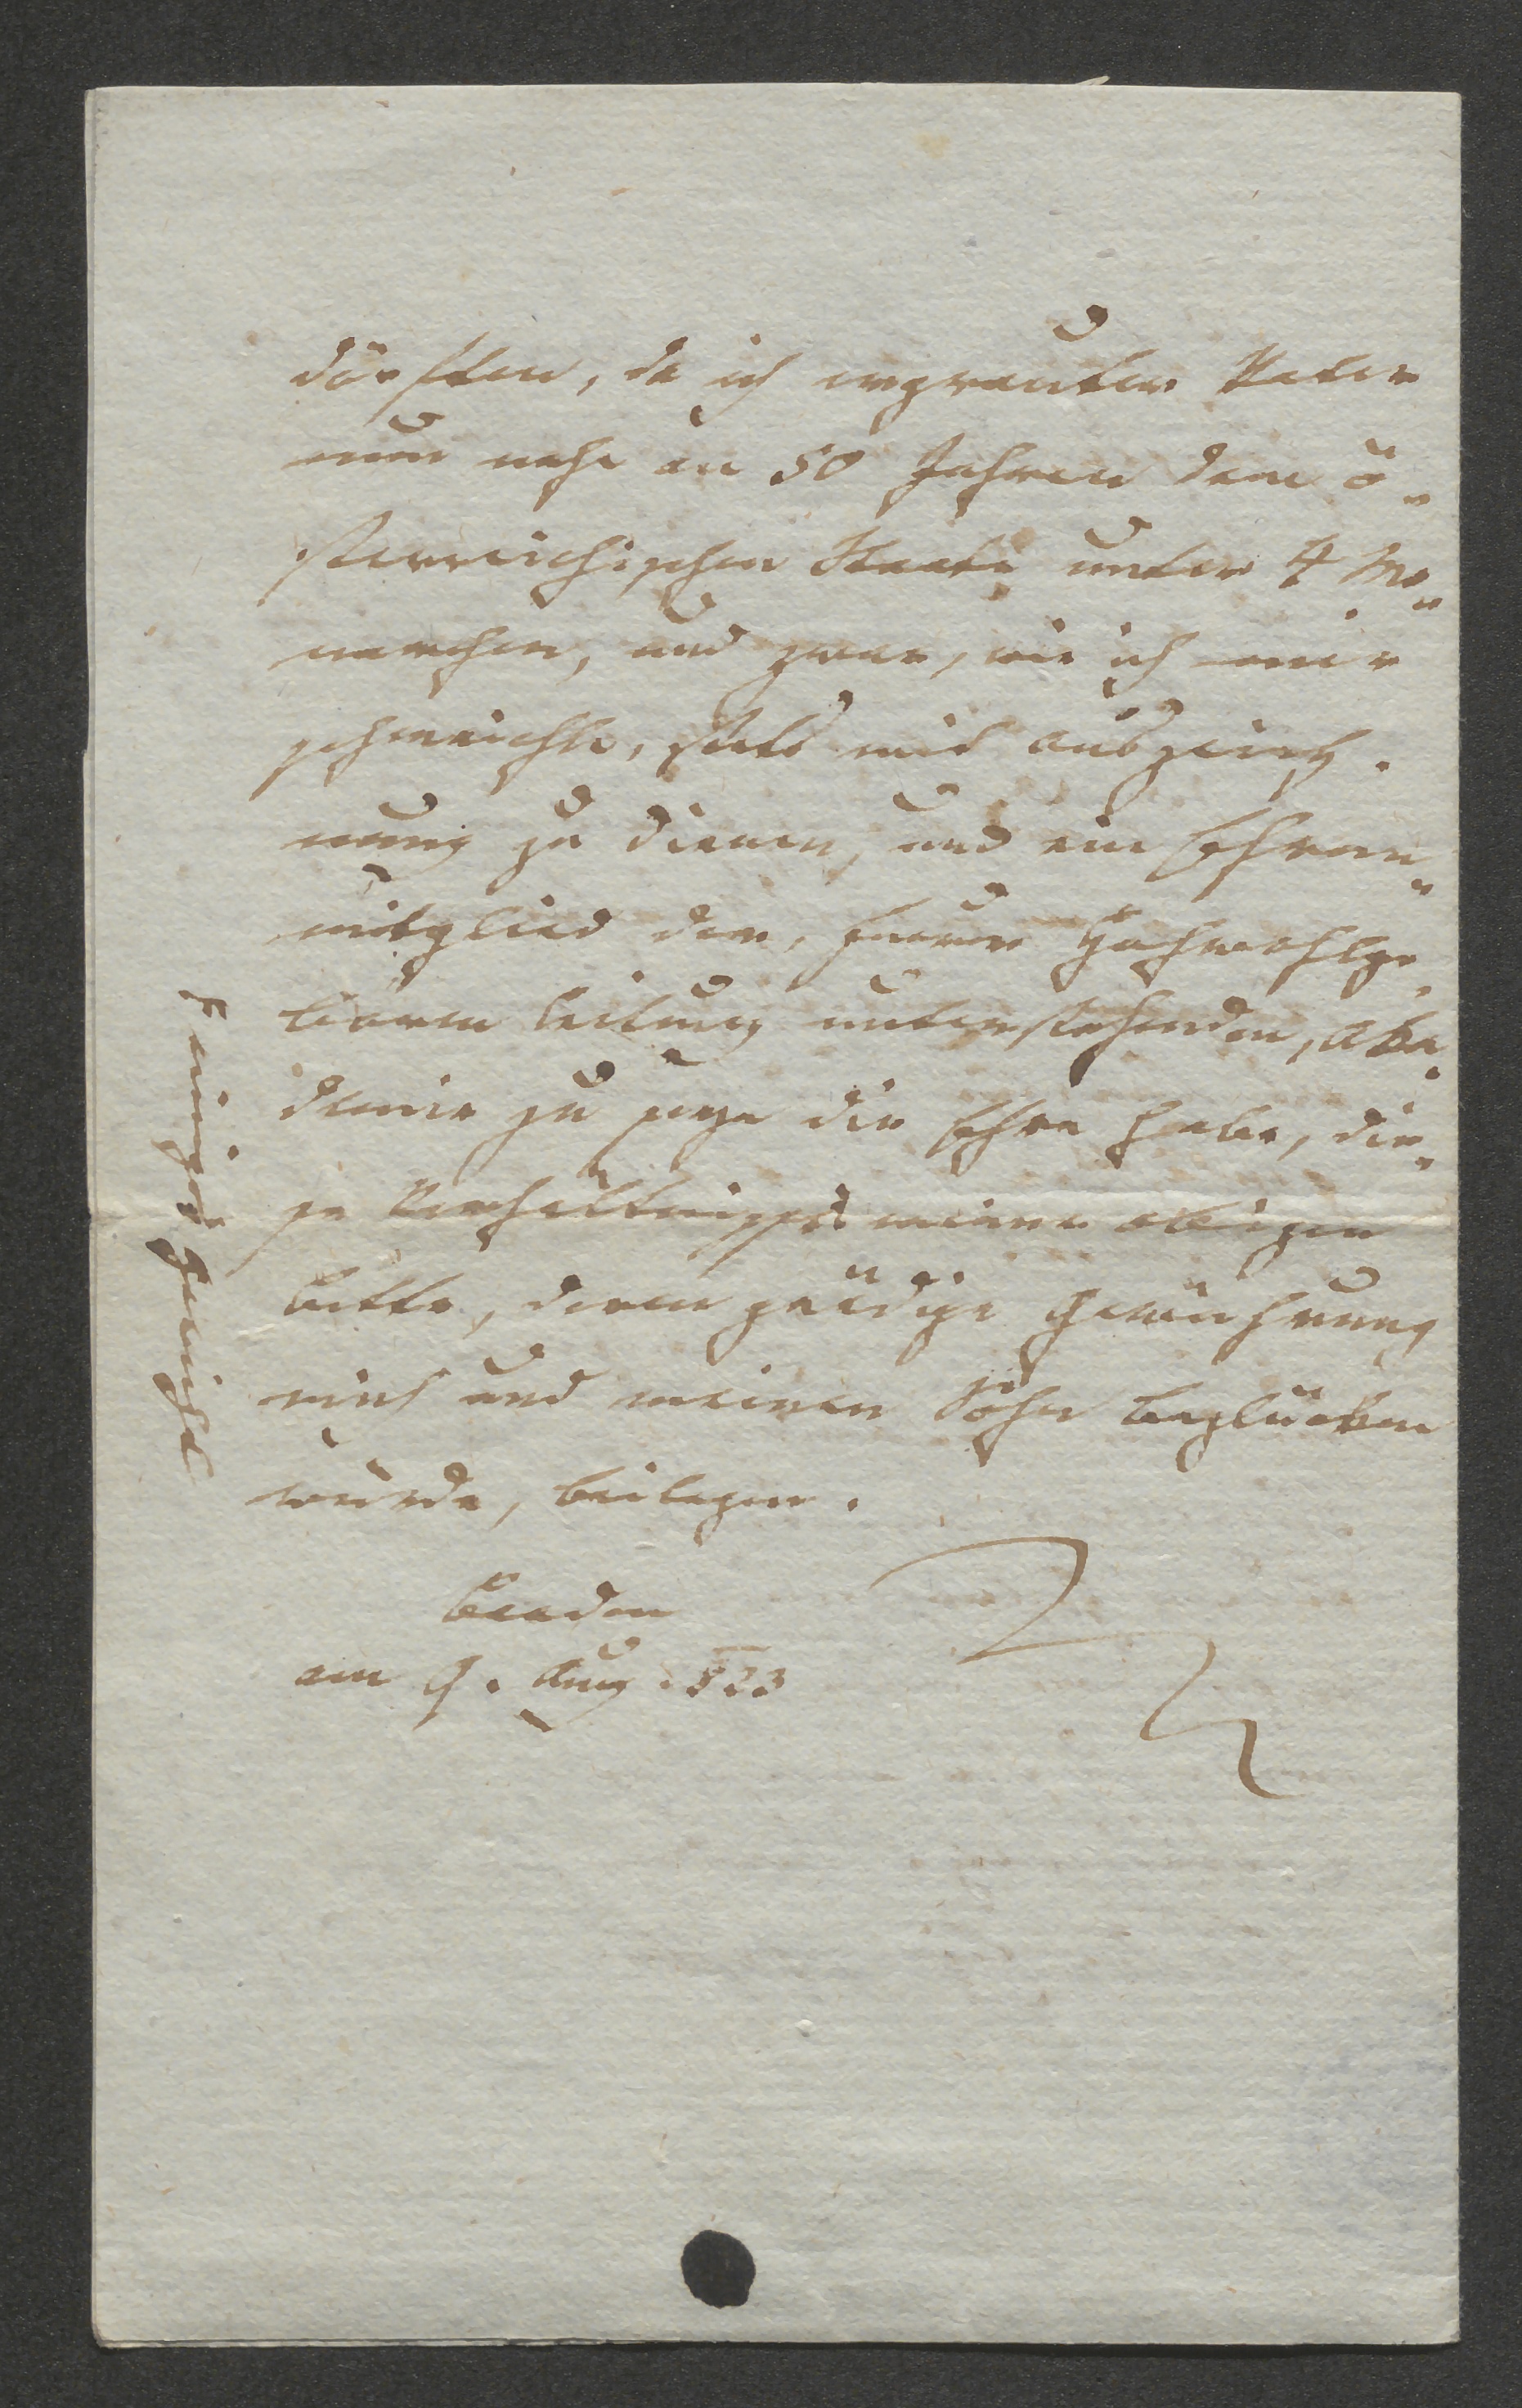 dörften, da ich ergrauter Vater
nun nahe an 50 Jahren dem ö-
sterreichischen Staate unter 4 Mo-
narchen, und zwar, wie ich mir
schmeichle, stets mit Auszeich-
nung zu dienen, und ein Ehren-
mitglied der, Euerer Hochwohlge-
boren Leitung unterstehenden, Aka-
demie zu seyn die Ehre habe, die-
se Verhältnisse meiner obigen
Bitte, deren gnädige Gewährung
mich und meinen Sohn beglücken
würde, beilegen.
Baaden
am 9. Aug. 823
einiges Gewicht